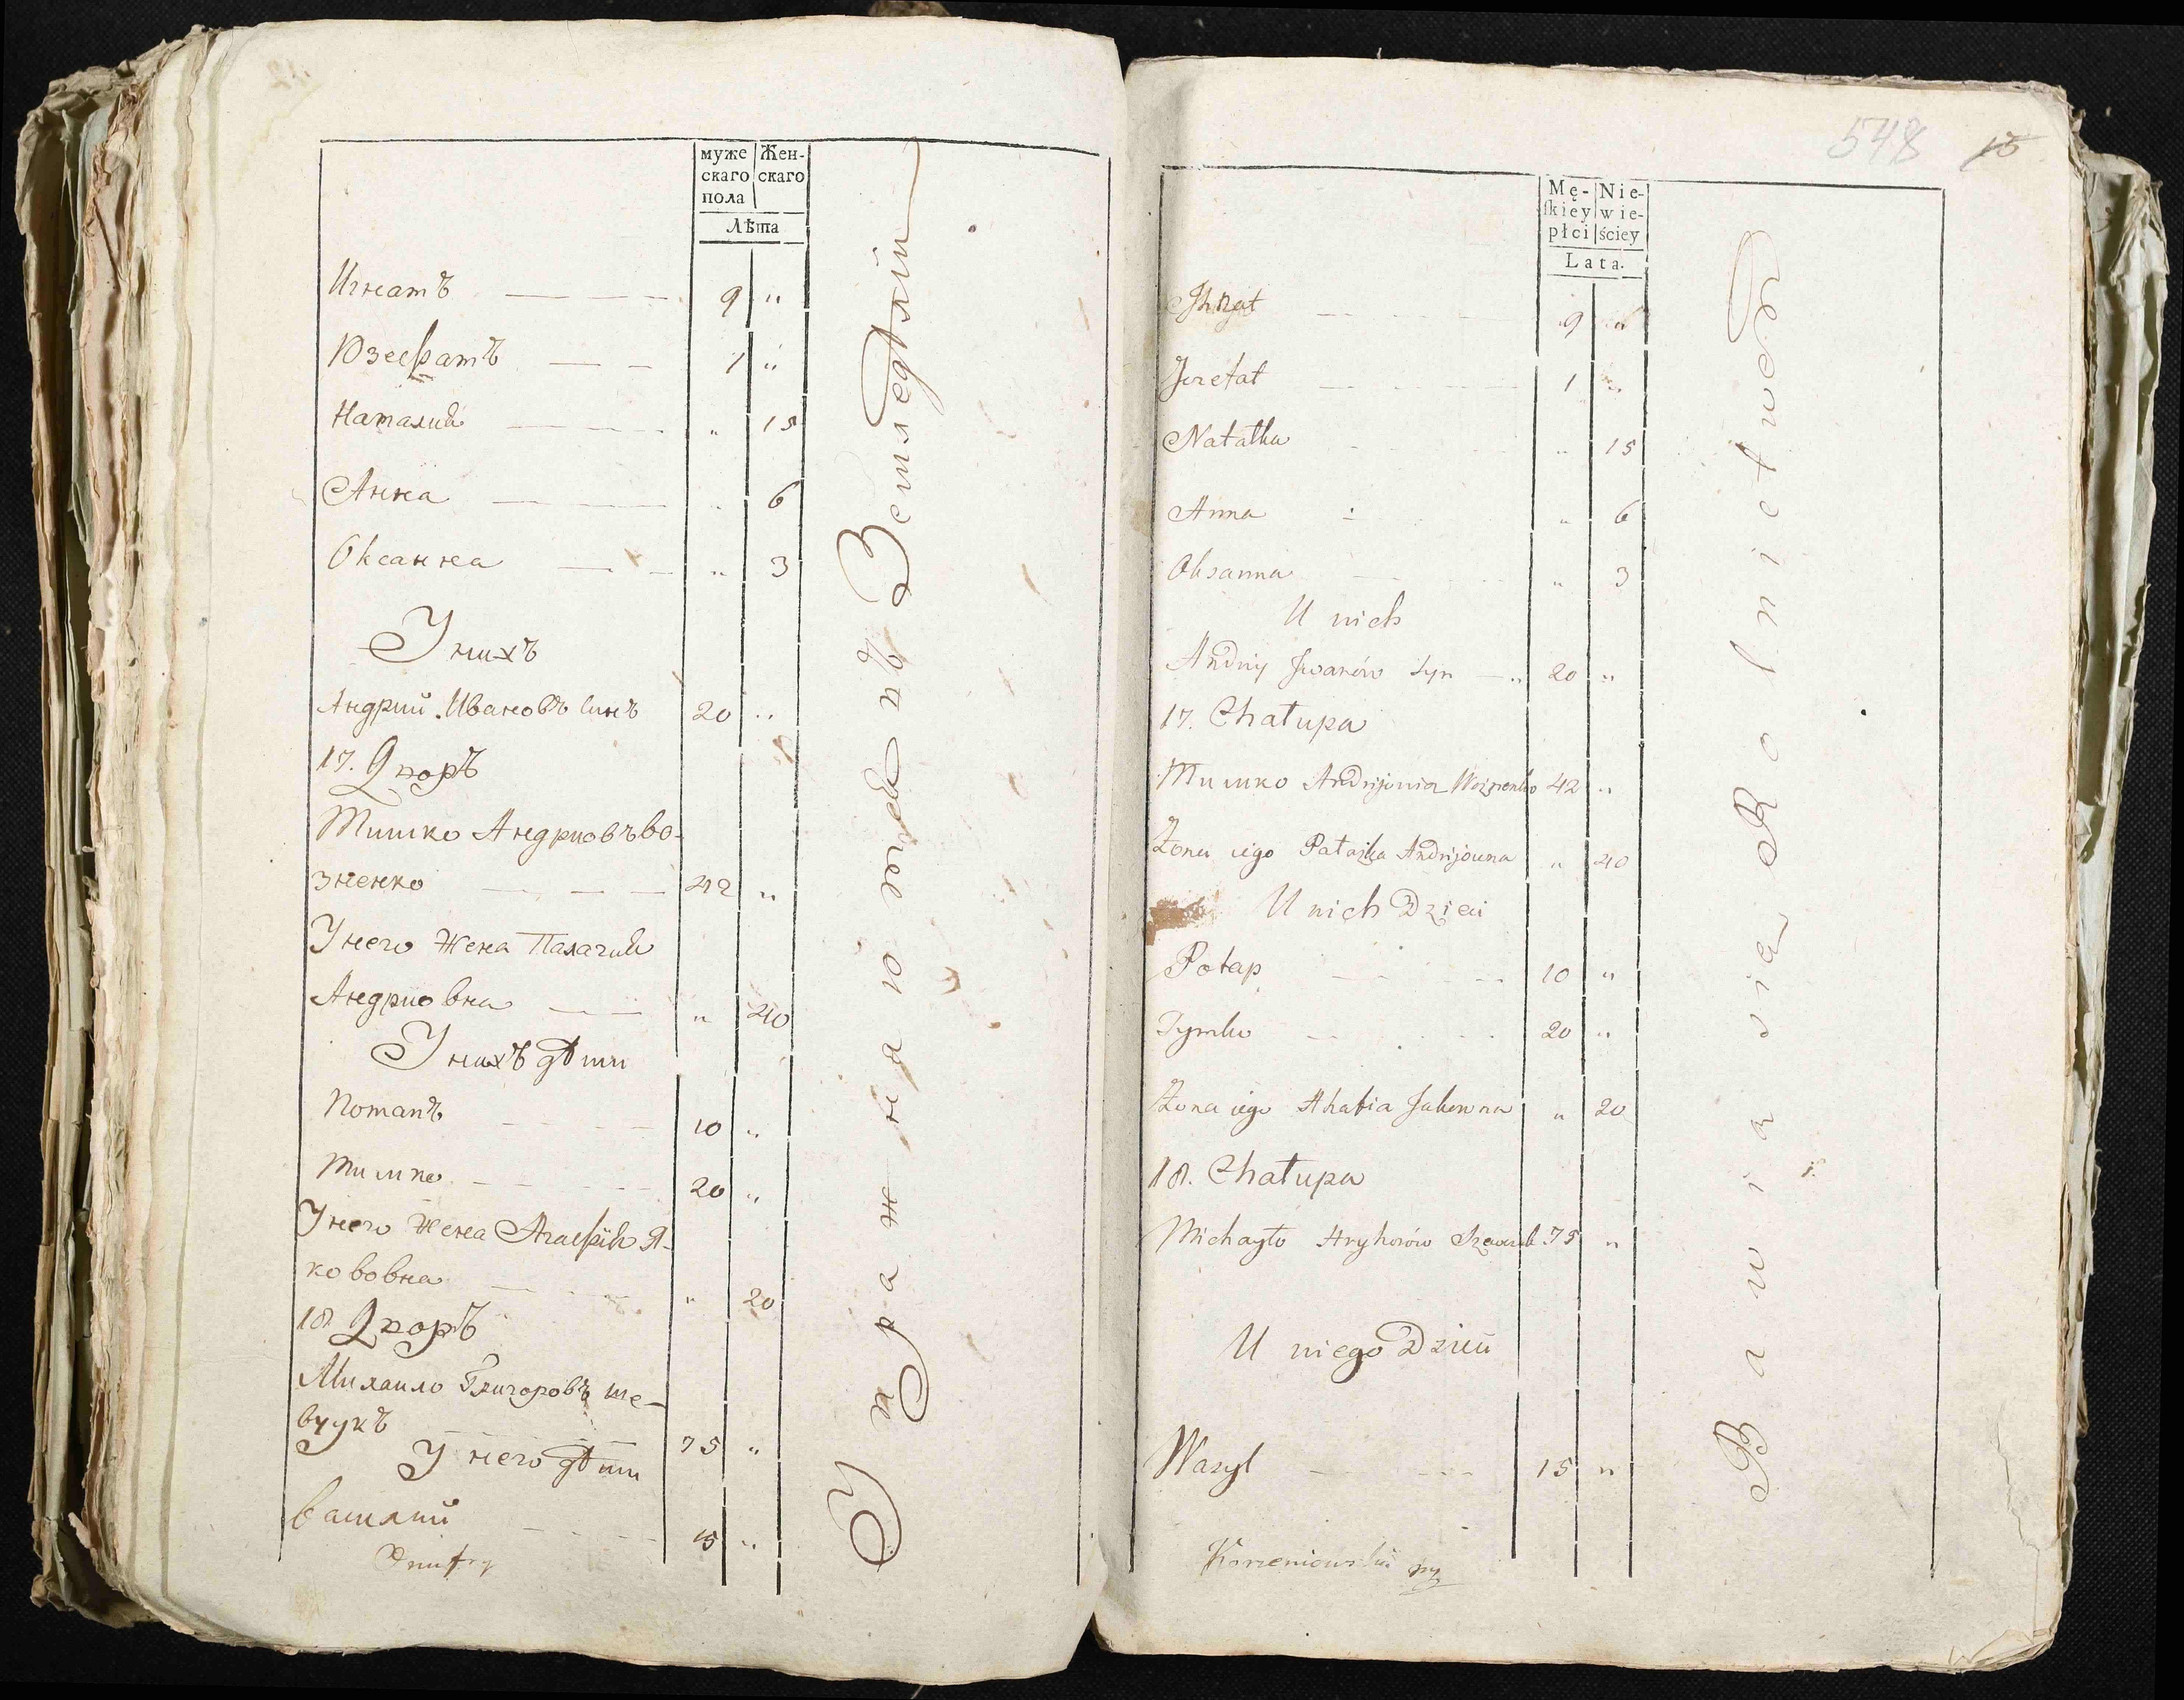 муже Жен-
скаго скаго
пола
Лѣта
Игнатъ 9 "
Юзефатъ 1 "
Наталия " 15
Анна " 6
Оксанна " 3
У нихъ
Андрий Ивановъ синъ 20 "
17. Дворъ
Тишко Андриовъ Во-
зненко 42 "
У него Жена Палагия
Андриовна " 40
У нихъ дѣти
Потапъ 10 "
Тишко 20 "
У него Жена Агафія Я-
кововна " 20
18 Дворъ
Михаило Григоровъ Ше-
вчукъ 75 "
У него дѣти
Василий 15 "
Dmitry
Упражняются въ Земледѣлїи
548 15
Mę- Nie-
ſkiey wie-
płci ściey
Lata.
Jhnat 9 "
Jozefat 1 "
Natalka " 15
Anna " 6
Oksanna " 3
U nich
Andriy Jwanów Syn 20 "
17. Chałupa
Тишко Andrijowia Woznenko 42 "
Zona iego Palażka Andrijowna " 40
U nich Dzieci
Potap 10 "
Tymko 20 "
Zona iego Ahafia Jakowna " 20
18. Chałupa
Michayło Hryhorów Szewczuk 75 "
U niego Dzieci
Wasyl 15 "
Korzeniowski
Bawią się Rolnictwem